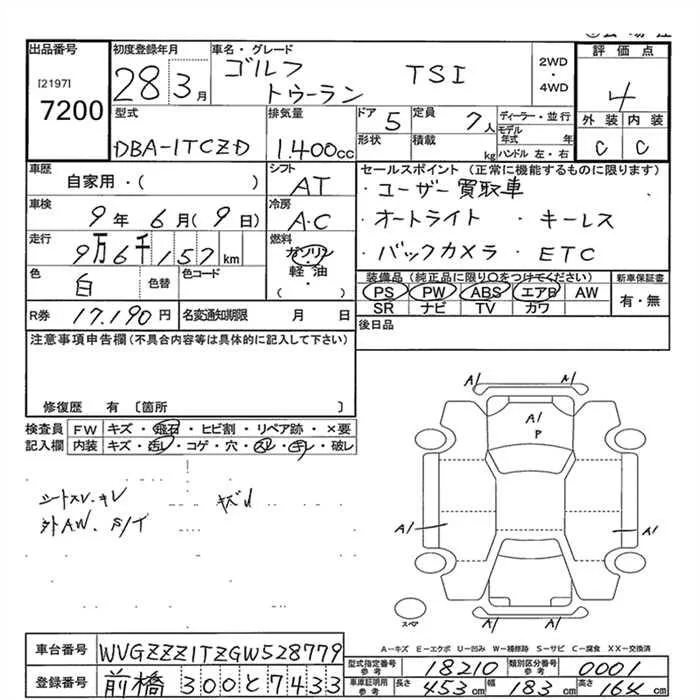 出品番号 初度登録年月 車名・グレード 評価点
[2197] 7200
28 3月 ゴルフ トゥーラン TSI 2WD・4WD 4
型式 排気量 ドア 5 定員 7人 ディーラー・並行 外装 内装
DBA-1TCZD 1.400cc 形状 積載 kg モデル年式 年 ハンドル 左・右 C C
車歴 シフト セールスポイント (正常に機能するものに限ります)
自家用・( ) AT ・ユーザー買取車
車検 冷房 ・オートライト ・キーレス
9年 6月(9日) A・C
走行 燃料 ・バックカメラ ・ETC
9万6千157km ガソリン
色 白 色替 色コード 軽油 ・( )
装備品 (純正品に限り○をつけてください) 新車保証書
PS PW ABS エアB AW 有・無
SR ナビ TV カワ
R券 17,190円 名変通知期限 月 日 後日品
注意事項申告欄 (不具合内容等は具体的に記入して下さい)
修復歴 有 〔箇所 〕
検査員 FW キズ・飛石・ヒビ割・リペア跡・×要
記入欄 内装 キズ・汚レ・コゲ・穴・スレ・キレ・破レ
シートスレ・キレ キズ
外AW.
A1 A1
A1
P
A1 A1
A1 A1
スペア
A-キズ E-エクボ U-凹み W-補修跡 S-サビ C-腐食 XX-交換済
車台番号 WVGZZZ1TZGW528779
型式指定番号 参考 18210 類別区分番号 参考 0001
登録番号 前橋 300 と 7433
車庫証明用 参考 長さ 453cm 幅 183cm 高さ 164cm